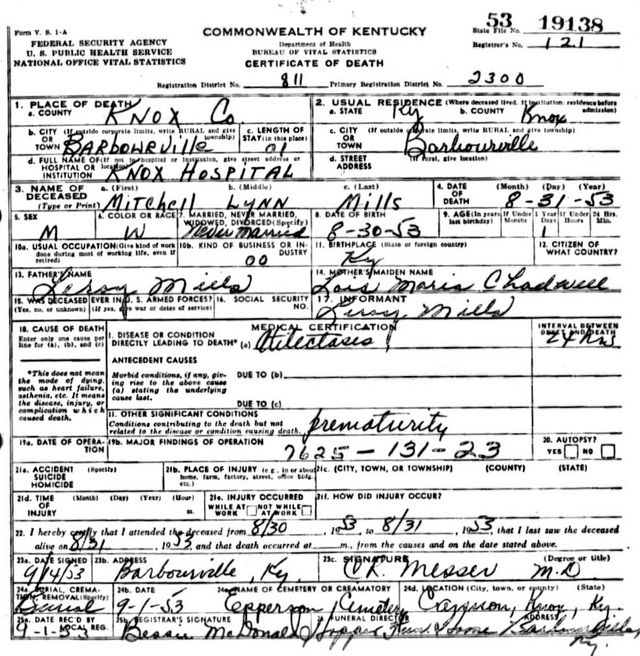 Form V. S. 1-A
FEDERAL SECURITY AGENCY
U. S. PUBLIC HEALTH SERVICE
NATIONAL OFFICE VITAL STATISTICS
COMMONWEALTH OF KENTUCKY
Department of Health
BUREAU OF VITAL STATISTICS
CERTIFICATE OF DEATH
State File No. 53 19138
Registrar's No. 121
Registration District No. 811 Primary Registration District No. 2300
1. PLACE OF DEATH
a. COUNTY Knox Co
2. USUAL RESIDENCE (Where deceased lived. If institution: residence before admission)
a. STATE Ky b. COUNTY Knox
b. CITY (If outside corporate limits, write RURAL and give township) OR TOWN Barbourville
c. LENGTH OF STAY (in this place) 01
c. CITY (If outside corporate limits, write RURAL and give township) OR TOWN Barbourville
d. FULL NAME OF (If not in hospital or institution, give street address or location) HOSPITAL OR INSTITUTION Knox Hospital
d. STREET ADDRESS (If rural, give location)
3. NAME OF DECEASED (Type or Print) a. (First) Mitchell b. (Middle) Lynn c. (Last) Mills
4. DATE OF DEATH (Month) (Day) (Year) 8-31-53
5. SEX M
6. COLOR OR RACE W
7. MARRIED, NEVER MARRIED, WIDOWED, DIVORCED (Specify) Never Married
8. DATE OF BIRTH 8-30-53
9. AGE (In years last birthday) If Under 1 Year If Under 24 Hrs.
Months Days Hours Min.
1
10a. USUAL OCCUPATION (Give kind of work done during most of working life, even if retired)
10b. KIND OF BUSINESS OR INDUSTRY 00
11. BIRTHPLACE (State or foreign country) Ky
12. CITIZEN OF WHAT COUNTRY?
13. FATHER'S NAME Leroy Mills
14. MOTHER'S MAIDEN NAME Lois Maria Chadwell
15. WAS DECEASED EVER IN U. S. ARMED FORCES? (Yes, no, or unknown) (If yes, give war or dates of service)
16. SOCIAL SECURITY NO.
17. INFORMANT Leroy Mills
18. CAUSE OF DEATH
Enter only one cause per line for (a), (b), and (c)
MEDICAL CERTIFICATION
INTERVAL BETWEEN ONSET AND DEATH
I. DISEASE OR CONDITION DIRECTLY LEADING TO DEATH* (a) Atelectasis 24 hrs
*This does not mean the mode of dying, such as heart failure, asthenia, etc. It means the disease, injury, or complication which caused death.
ANTECEDENT CAUSES
Morbid conditions, if any, giving rise to the above cause (a) stating the underlying cause last.
DUE TO (b)
DUE TO (c)
II. OTHER SIGNIFICANT CONDITIONS
Conditions contributing to the death but not related to the disease or condition causing death. Prematurity
19a. DATE OF OPERATION
19b. MAJOR FINDINGS OF OPERATION
7625-131-23
20. AUTOPSY?
YES NO
21a. ACCIDENT SUICIDE HOMICIDE (Specify)
21b. PLACE OF INJURY (e.g., in or about home, farm, factory, street, office bldg., etc.)
21c. (CITY, TOWN, OR TOWNSHIP) (COUNTY) (STATE)
21d. TIME OF INJURY (Month) (Day) (Year) (Hour) m.
21e. INJURY OCCURRED
WHILE AT WORK NOT WHILE AT WORK
21f. HOW DID INJURY OCCUR?
22. I hereby certify that I attended the deceased from 8/30 1953 to 8/31, 1953, that I last saw the deceased
alive on 8/31, 1953 and that death occurred at m., from the causes and on the date stated above.
23a. DATE SIGNED 9/4/53
23b. ADDRESS Barbourville, Ky.
23c. SIGNATURE (Degree or title) C.R. Messer M.D
24a. BURIAL, CREMATION, REMOVAL (Specify) Burial
24b. DATE 9-1-53
24c. NAME OF CEMETERY OR CREMATORY Epperson Cemetery
24d. LOCATION (City, town, or county) (State) Knox, Ky.
25a. DATE REC'D BY LOCAL REG. 9-1-53
25b. REGISTRAR'S SIGNATURE Bessie McDonald
26. FUNERAL DIRECTOR ADDRESS Hopper Fun. Home Barbourville, Ky.